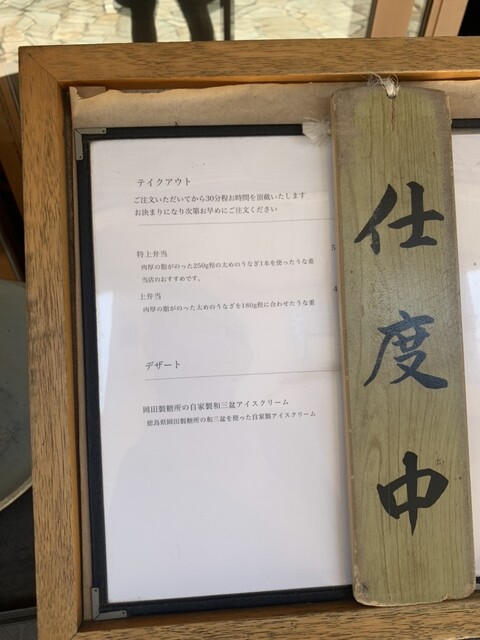 テイクアウト
ご注文いただいてから30分程お時間を頂戴いたします
お決まりになり次第お早めにご注文ください
特上弁当
肉厚の脂がのった250g程の太めのうなぎ1本を使ったうな重
当店のおすすめです。
上弁当
肉厚の脂がのった太めのうなぎを180g程に合わせたうな重
デザート
岡田製糖所の自家製和三盆アイスクリーム
徳島県岡田製糖所の和三盆を使った自家製アイスクリーム
仕度中